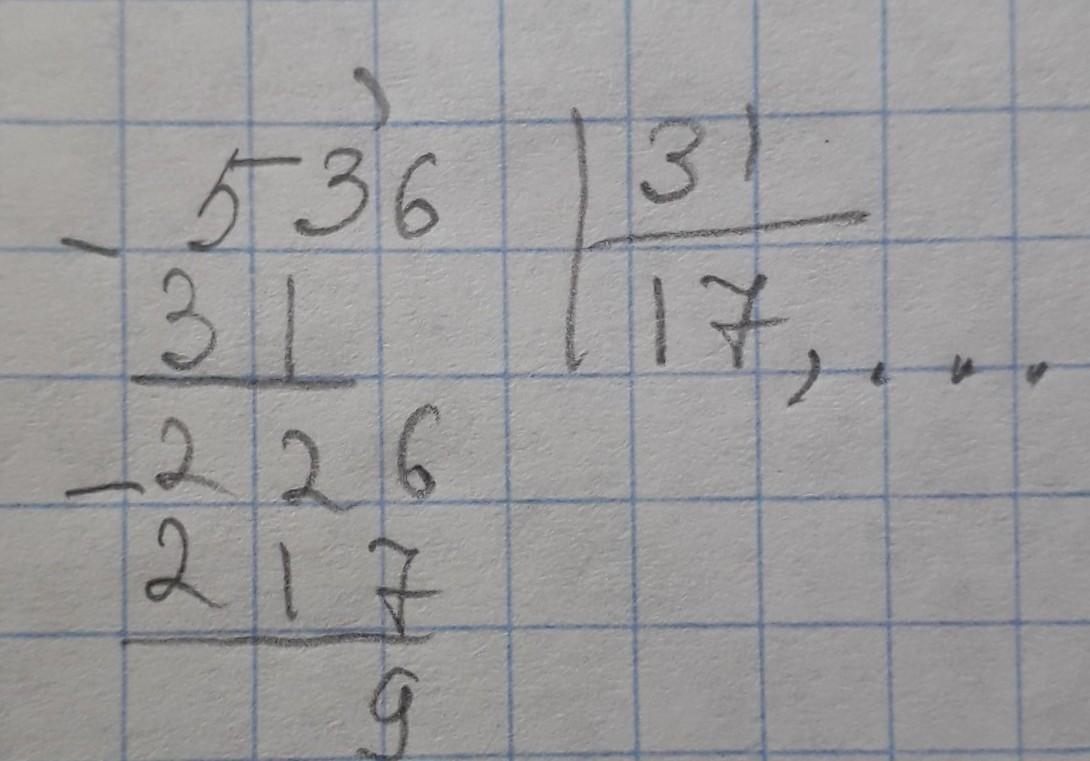 536 31
- 31 17, ...
- 226
217
9